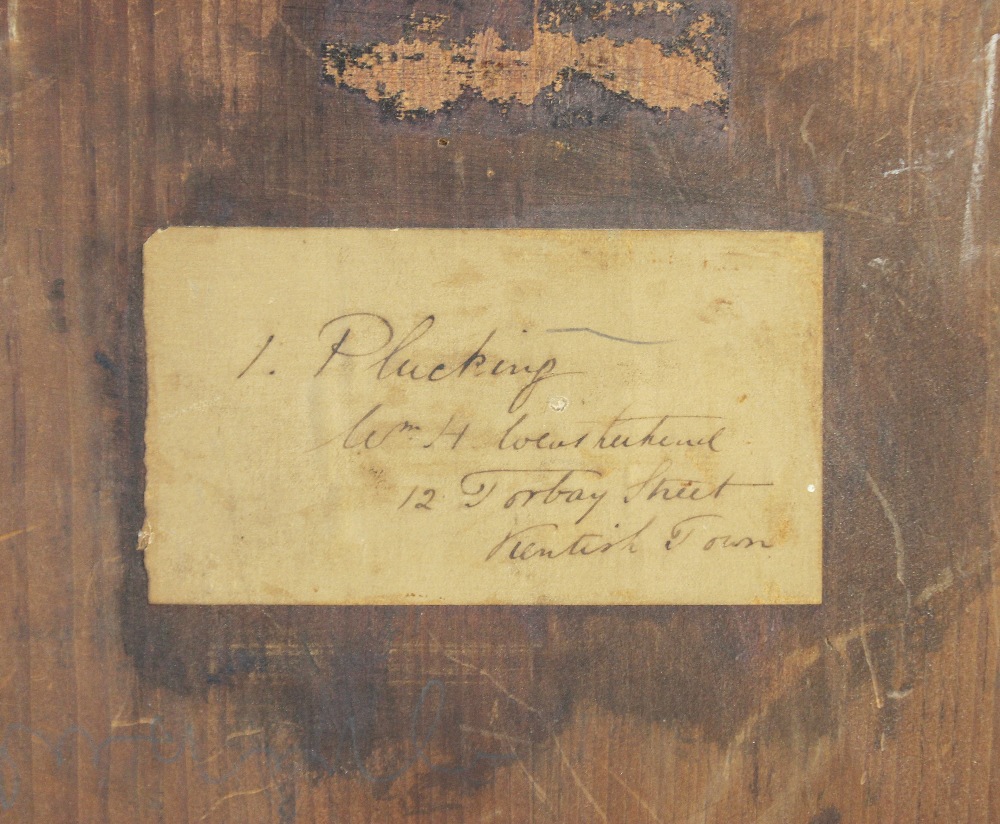 1. Plucking
Wm H Weatherhead
12 Torbay Street
Kentish Town